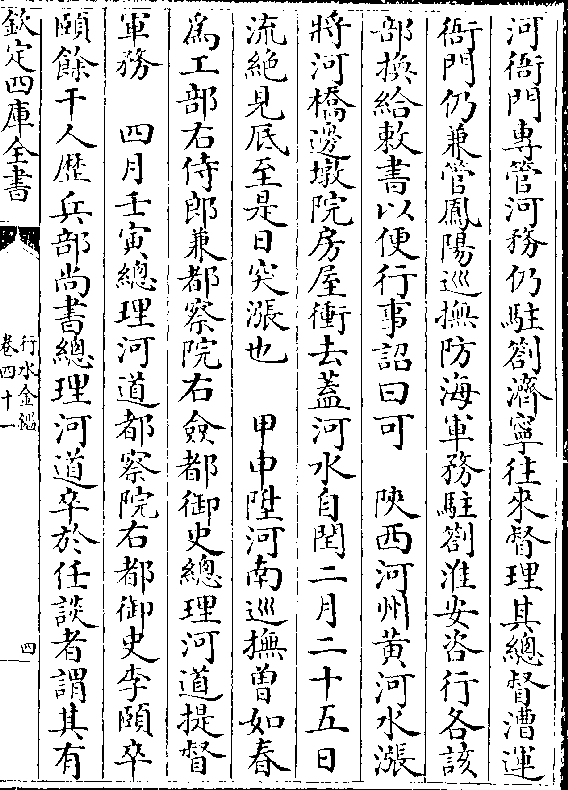 河衙門專管河務仍駐劄濟寧往來督理其總督漕運
衙門仍兼管鳳陽巡撫防海軍務駐劄淮安咨行各該
部換給敕書以便行事詔曰可　陜西河州黄河水漲
將河橋邊墩院房屋衝去蓋河水自閏二月二十五日
流絶見底至是日突漲也　甲申陞河南巡撫曾如春
爲工部右侍郎兼都察院右僉都御史總理河道提督
軍務　四月壬寅總理河道都察院右都御史李頤卒
頤餘干人歴兵部尚書總理河道卒於任談者謂其有
欽定四庫全書
行水金鑑
卷四十一
四